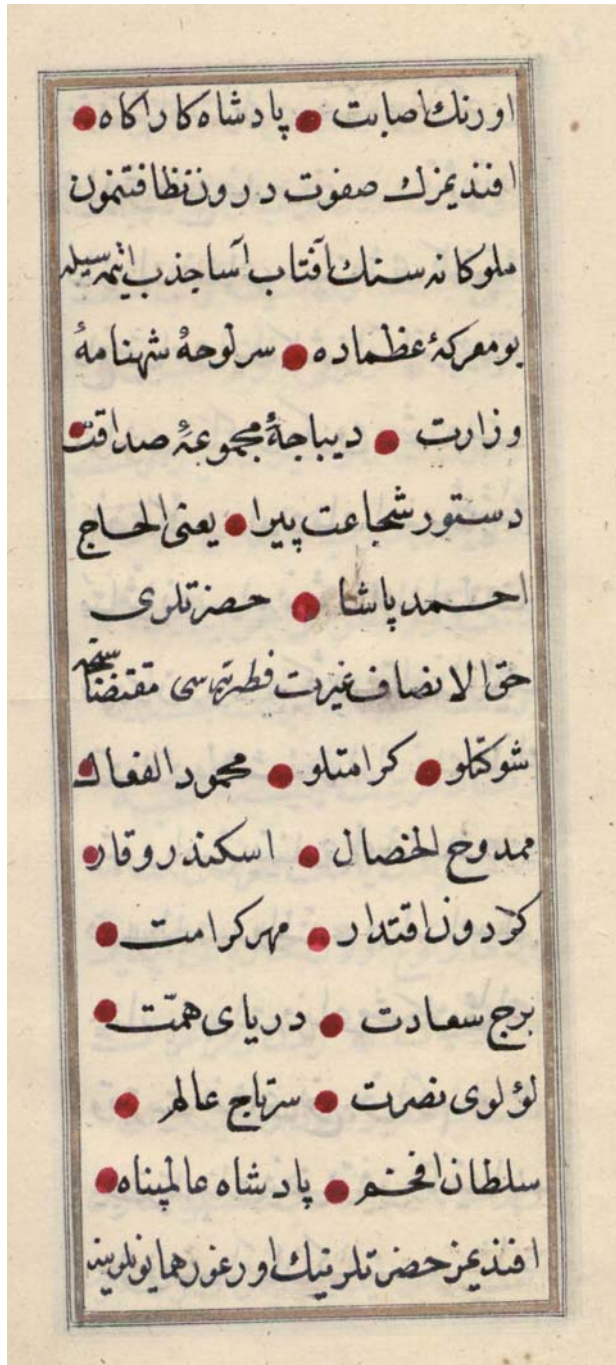 اورنك اصابت ● پادشاه كاراكاه ●
افنديمزك صفوت درون نظافتنمون
ملوكانه سنك آفتاب آسا جذب ايتمه سيله
بو معركۀ عظماده ● سرلوحۀ شهنامۀ
وزارت ● ديباجۀ مجموعۀ صداقت ●
دستور شجاعت پيرا ● يعنى الحاج
احمد پاشا ● حضرتلرى
حق الانصاف غيرت فطريه سى مقتضاسنجه
شوكتلو ● كرامتلو ● محمود الفعال ●
ممدوح الخصال ● اسكندر وقار ●
كردون اقتدار ● مهر كرامت ●
برج سعادت ● درياى همّت ●
لؤلوى نصرت ● سرتاج عالم ●
سلطان افخم ● پادشاه عالمپناه ●
افنديمز حضرتلرينيك اورغور همايونلرينه